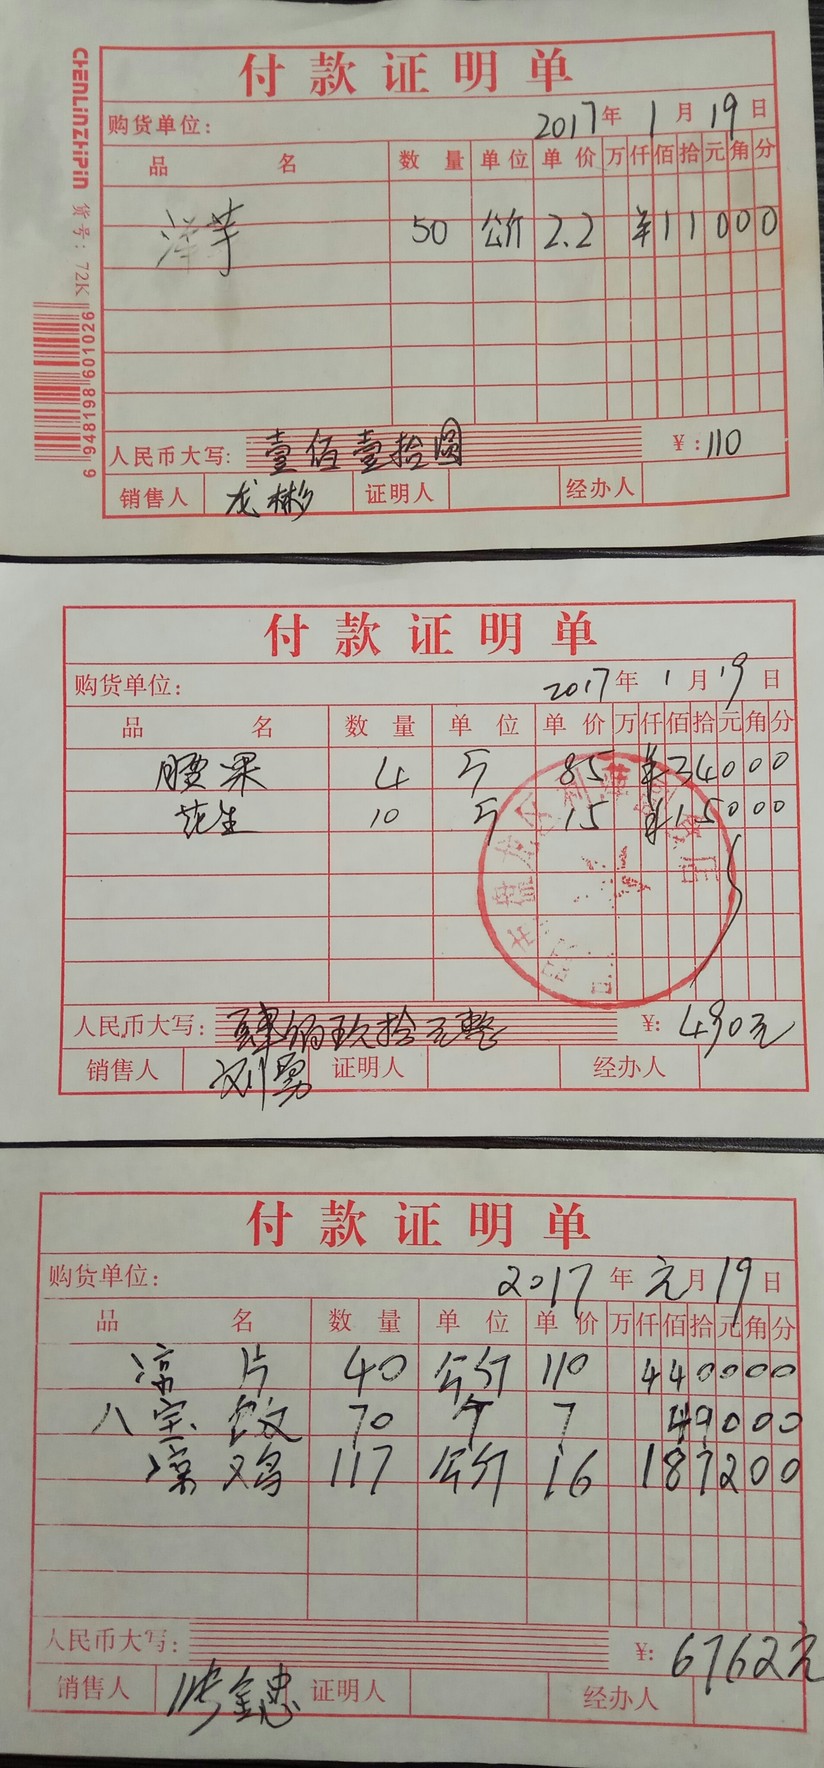 付款证明单
购货单位: 2017年1月19日
品名 数量 单位 单价 万仟佰拾元角分
洋芋 50 公斤 2.2 ¥11000
人民币大写: 壹佰壹拾圆 ¥:110
销售人 龙彬 证明人 经办人
CHENLINZHIPIN 货号: 72K
6 948198 601026
付款证明单
购货单位: 2017年1月19日
品名 数量 单位 单价 万仟佰拾元角分
腰果 4 斤 85 ¥34000
花生 10 斤 15 ¥15000
人民币大写: 肆佰玖拾元整 ¥: 490元
销售人 刘勇 证明人 经办人
付款证明单
购货单位: 2017年元月19日
品名 数量 单位 单价 万仟佰拾元角分
凉片 40 公斤 110 440000
八宝饭 70 个 7 49000
凉鸡 117 公斤 16 187200
人民币大写: ¥: 6762元
销售人 金忠 证明人 经办人